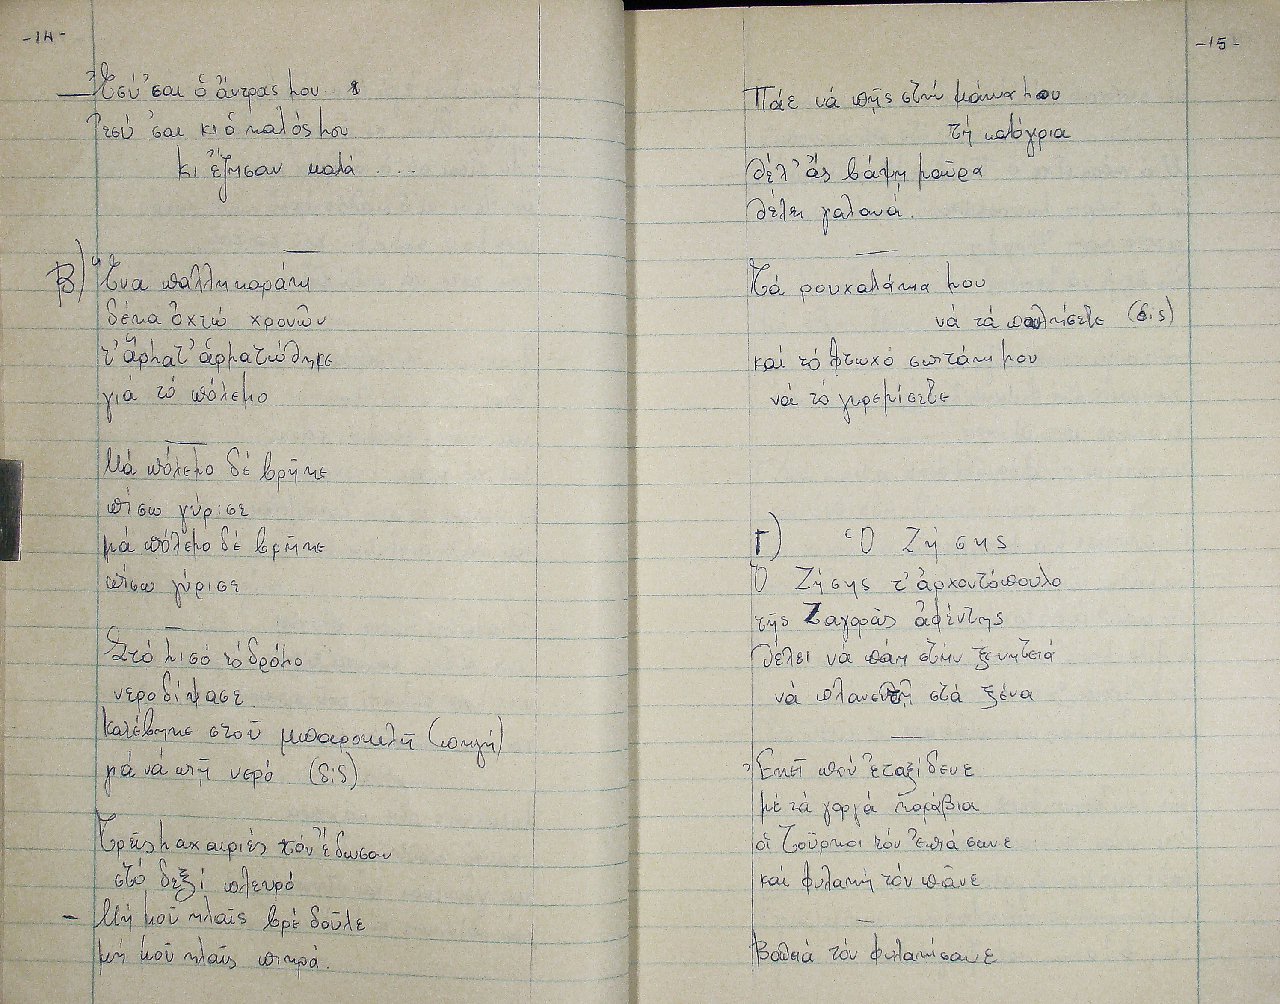 -14-
— Ἐσύ 'σαι ὁ ἄντρας μου
Ἐσύ 'σαι κι ὁ καλός μου
κι ἔζησαν καλά ....
Β) Ἕνα παλληκαράκι
δέκα ὀχτώ χρονῶν
τ' ἄρματ' ἁρματώθηκε
γιά τό πόλεμο
Μά πόλεμο δέ βρῆκε
πίσω γύρισε
μά πόλεμο δέ βρῆκε
πίσω γύρισε
Στό μισό τό δρόμο
νεροδίψασε
κατέβηκε στοῦ μπαρακλῆ (πηγή)
γιά νά πιῆ νερό (δίς)
Τρεῖς μαχαιριές τόν ἔδωσαν
στό δεξί πλευρό
– Μή μοῦ κλαῖς βρέ δοῦλε
μή μοῦ κλαῖς πικρά.
-15-
Πάε νά πῆς στήν μάνα μου
τή καλόγρια
θέλ' ἄς βάφη μαῦρα
θέλει γαλανά.
Τά ρουχαλάκια μου
νά τά πουλήσετε (δίς)
καί τό φτωχό σπιτάκι μου
νά τό γκρεμίσετε
Γ) Ὁ Ζήσης
Ὁ Ζήσης τ' ἀρχοντόπουλο
τῆς Ζαγορᾶς ἀφέντης
θέλει νά πάη στήν ξενητειά
νά πλανευτῆ στά ξένα
Ἐκεῖ πού ἐταξίδευε
μέ τά γοργά καράβια
οἱ Τοῦρκοι τόν ἐπιάσανε
καί φυλακή τόν πᾶνε
Βαθειά τόν φυλακίσανε